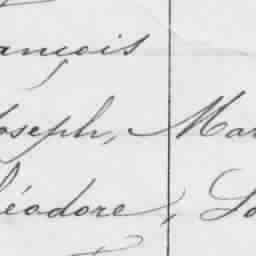 ançois
Joseph, Mar
héodore, Lo